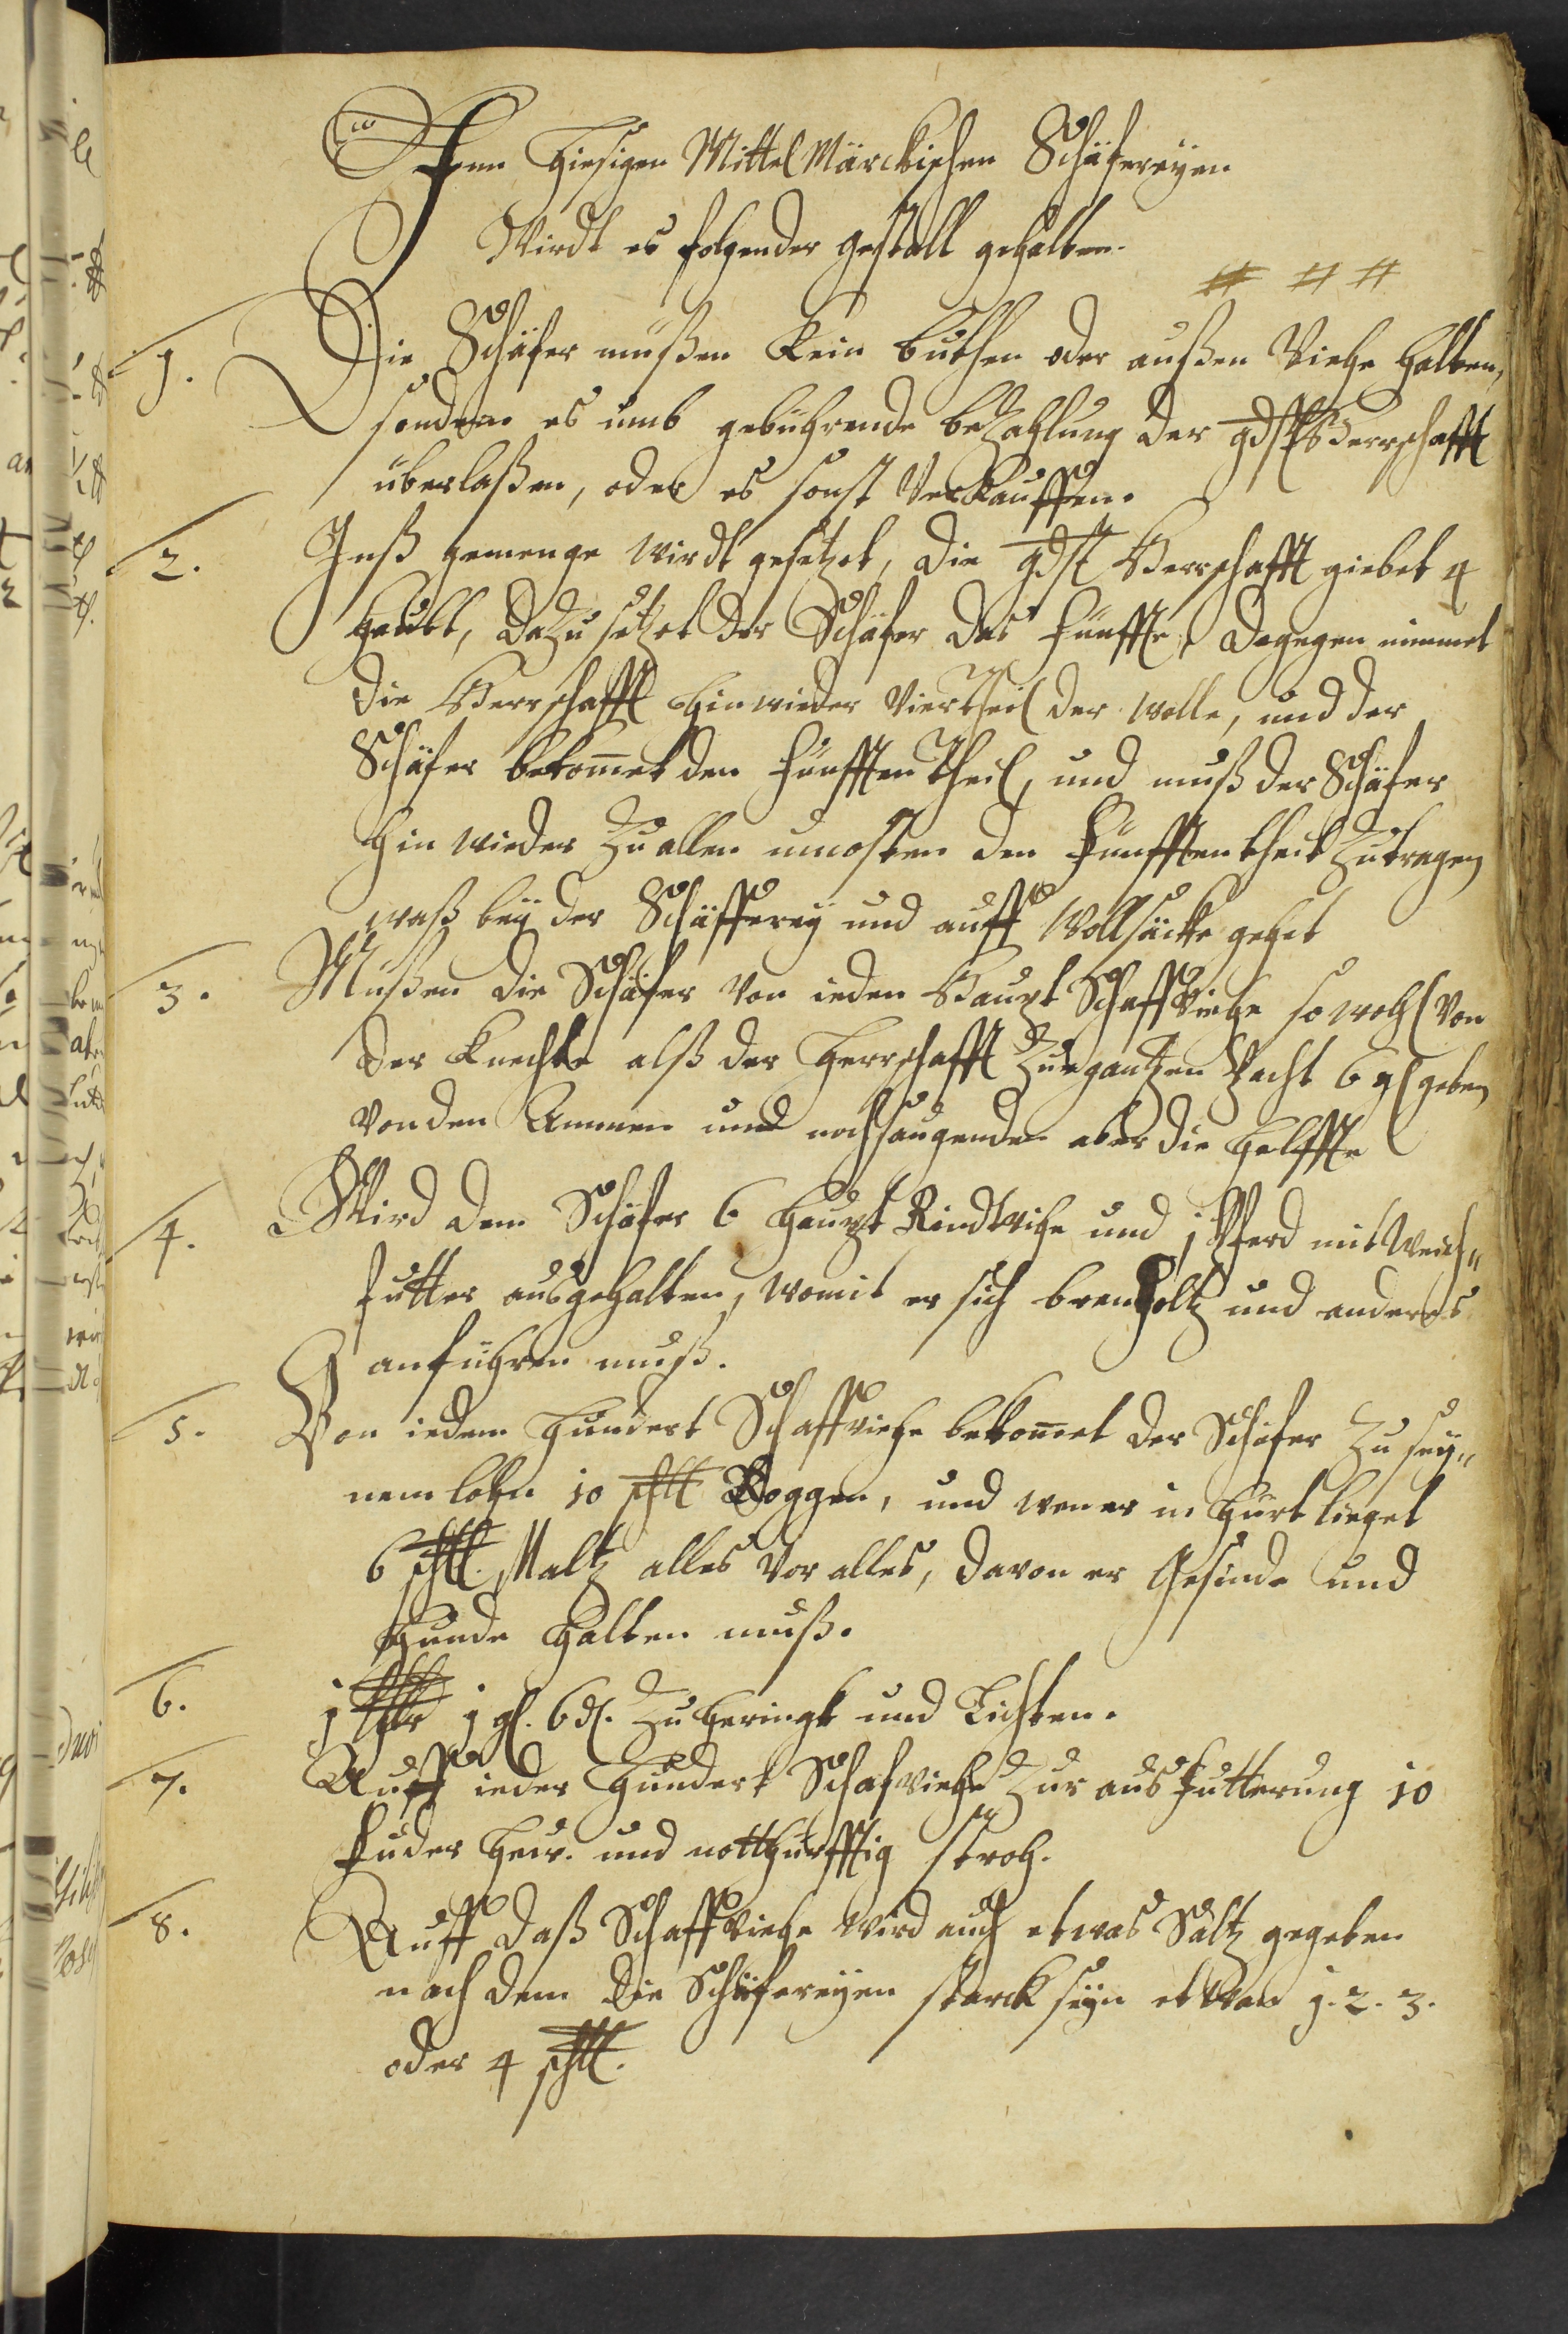 Inn hiesigen MittelMärckischen Schäfereyen
Wirdt es folgender gestalt gehalten.
# # #
1. Die Schäfer müßen kein buthen oder außen Viehe halten,
sondern es umb gebührende bezahlung der gdst Herrschafft
überlaßen, oder es sonst Verkauffen.
2. Inß gemenge wirdt gesetzet, die gdst Herrschafft giebet 4
haubt, dazu setzet der Schäfer das fünffte, dagegen nimmet
die Herrschafft hinwieder Viertheil der wolle, und der
Schäfer bekommet den fünfften theil, und muß der Schäfer
hin wieder zu allen uncosten den fünfften theil zutragen
waß bey der Schäfferey und auff Wollsäcke gehet
3. Müßen die Schäfer von ieden Haupt Schaffviehe so wohl von
der Knechte alß der Herrschafft zur gantzen Pacht 6 gl geben
von den Lämmern und nochsaugenden aber die helffte
4. Wird dem Schäfer 6 haupt Rindtviehe und j Pferd mit
futter ausgehalten, womit er sich brenholtz und anders
anführen muß.
5. Von iedem hundert Schaffviehe bekommet der Schäfer zu sey„
nem lohn 10 schtl Roggen, und wen er in hürt lieget
6 schtl. Maltz alles vor alles, davon er Gesinde und
Hunde halten muß.
6. j thlr j gl. 6 d. zu heringk und Lichten.
7. Auff ieder hundert Schafviehe zur ausfutterung 10
fuder heu. und notthürfftig stroh.
8. Auff daß Schaffviehe wird auch etwas Saltz gegeben
nach dem die Schäfereyen starck seyn etwan j. 2. 3.
oder 4 schtl.